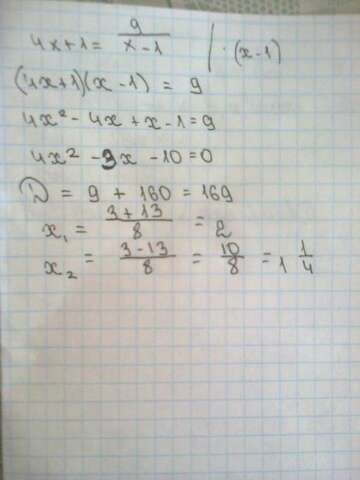 4x+1 = 9/(x-1) | · (x-1)
(4x+1)(x-1) = 9
4x² - 4x + x - 1 = 9
4x² - 3x - 10 = 0
D = 9 + 160 = 169
x₁ = (3+13)/8 = 2
x₂ = (3-13)/8 = 10/8 = 1 1/4